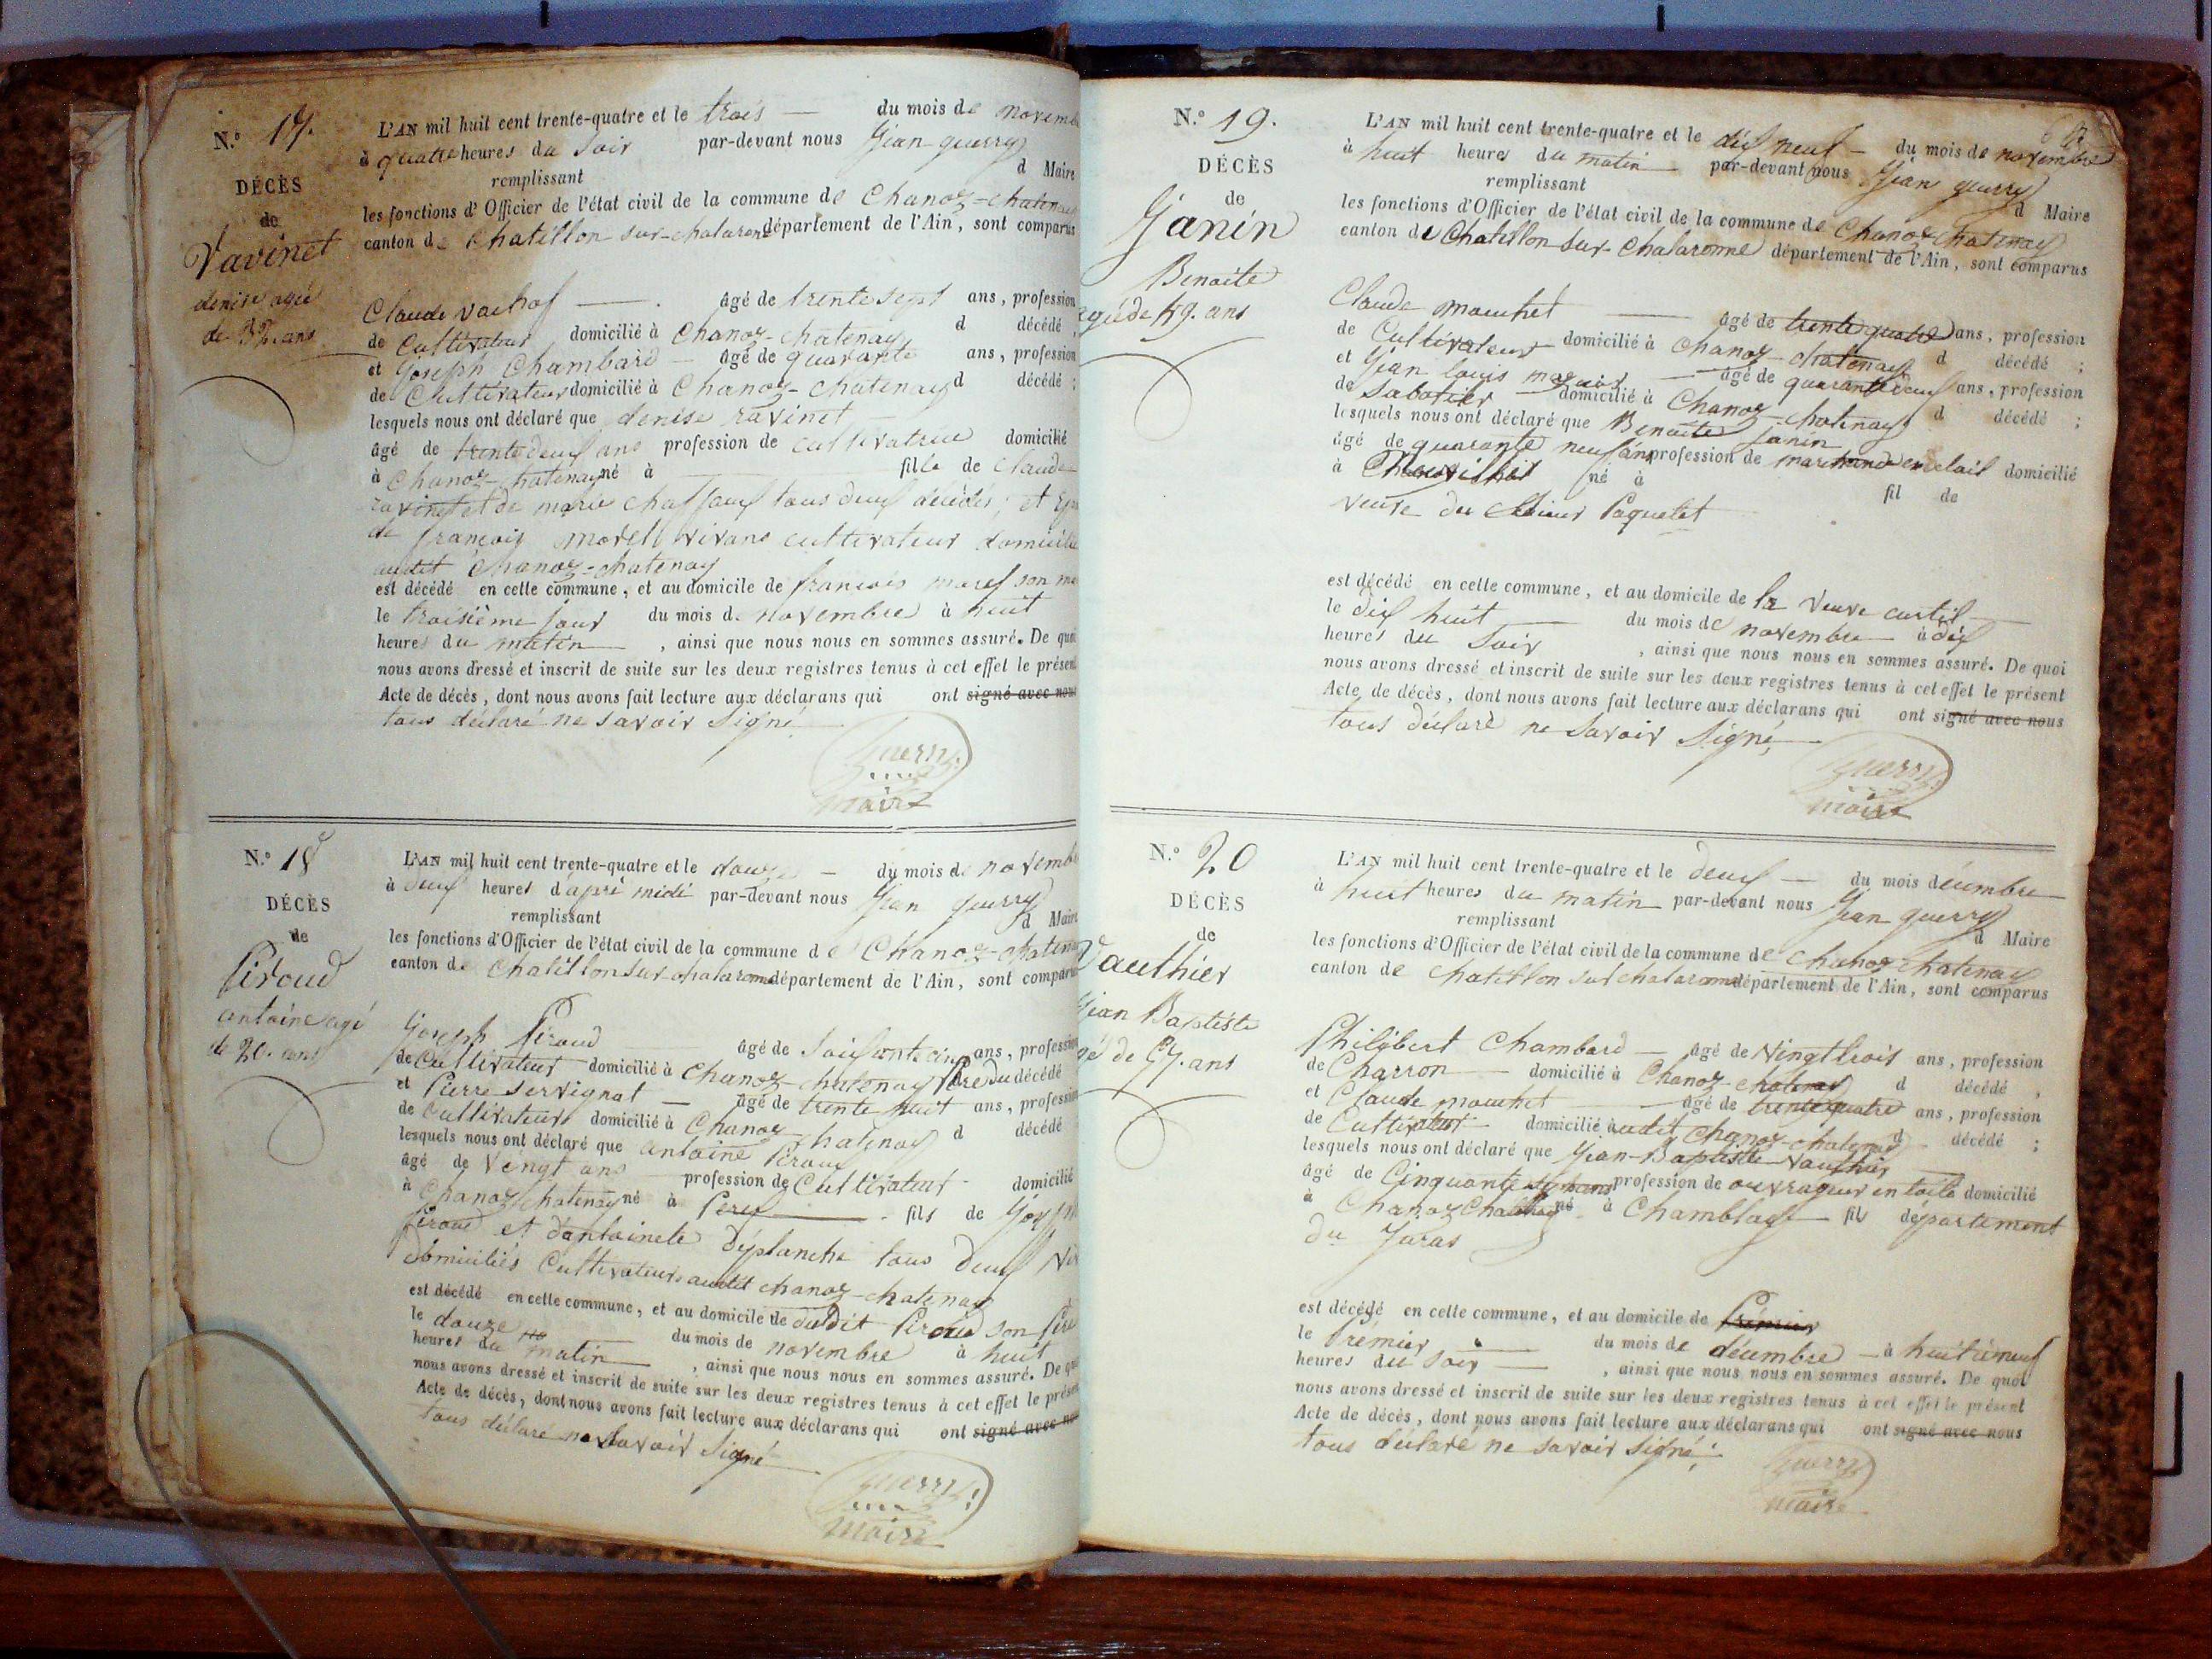 N.° 17.
DÉCÈS
de
Ravinet
denise agée
de 32. ans
L'AN mil huit cent trente-quatre et le trois du mois de novemb
à quatre heures du Soir par-devant nous Jean guerry
d Maire
remplissant
les fonctions d'Officier de l'état civil de la commune de Chanoz-chatenay
canton de Chatillon sur-chalaronne département de l'Ain, sont comparus
Claude âgé de trente sept ans, profession
de Cultivateur domicilié à Chanoz-chatenay d décédé ;
et Joseph Chambard âgé de quarante ans, profession
de Cultivateur domicilié à Chanoz-chatenay d décédé ;
lesquels nous ont déclaré que denise ravinet
âgé de trente deux ans profession de cultivatrice domicilié
à Chanoz-chatenay né à fille de Claude
ravinet et de marie tous deux décédés, et
de françois morel vivans cultivateur domicilié
audit Chanoz-chatenay
est décédé en cette commune, et au domicile de françois morel son
le troisième jour du mois de novembre à huit
heures du matin , ainsi que nous nous en sommes assuré. De quoi
nous avons dressé et inscrit de suite sur les deux registres tenus à cet effet le présent
Acte de décès, dont nous avons fait lecture aux déclarans qui ont signé avec nous
tous déclaré ne savoir Signé
Guerry
maire
N.° 18
DÉCÈS
de
Piroud
antoine agé
de 20. ans
L'AN mil huit cent trente-quatre et le douze du mois de novemb
à deux heures d'après midi par-devant nous Jean guerry
d Maire
remplissant
les fonctions d'Officier de l'état civil de la commune de Chanoz-chatenay
canton de Chatillon sur chalaronne département de l'Ain, sont comparus
Joseph Piroud âgé de Soixante cinq ans, profession
de Cultivateur domicilié à Chanoz-chatenay Père du décédé
et Pierre Servignat âgé de trente huit ans, profession
de cultivateur domicilié à Chanoz-chatenay d décédé
lesquels nous ont déclaré que antoine Piroud
âgé de Vingt ans profession de Cultivateur domicilié
à Chanoz chatenay né à Perex fils de Joseph
Piroud et d'antoinete déplanche tous deux
domiciliés Cultivateurs audit chanoz-chatenay
est décédé en cette commune, et au domicile de dudit Piroud son Père
le douze du mois de novembre à huit
heures du matin , ainsi que nous nous en sommes assuré. De quoi
nous avons dressé et inscrit de suite sur les deux registres tenus à cet effet le présent
Acte de décès, dont nous avons fait lecture aux déclarans qui ont signé avec nous
tous déclaré ne savoir Signé
Guerry
maire
N.° 19.
DÉCÈS
de
Janin
Benoite
agé de 49. ans
L'AN mil huit cent trente-quatre et le dix neuf du mois de novembre
à huit heures du matin par-devant nous Jean guerry
d Maire
remplissant
les fonctions d'Officier de l'état civil de la commune de Chanoz chatenay
canton de Chatillon sur-Chalaronne département de l'Ain, sont comparus
Claude mouchet âgé de trente quatre ans, profession
de Cultivateur domicilié à Chanoz-chatenay d décédé ;
et Jean louis âgé de quarante deux ans, profession
de Sabotier domicilié à Chanoz-chatenay d décédé ;
lesquels nous ont déclaré que Benoite janin
âgé de quarante neuf ans profession de marchande en detail domicilié
à né à fil de
Veuve du Paquelet
est décédé en cette commune, et au domicile de la Veuve curtil
le dix huit du mois de novembre à dix
heures du Soir , ainsi que nous nous en sommes assuré. De quoi
nous avons dressé et inscrit de suite sur les deux registres tenus à cet effet le présent
Acte de décès, dont nous avons fait lecture aux déclarans qui ont signé avec nous
tous déclaré ne Savoir Signé
Guerry
maire
N.° 20
DÉCÈS
de
Vauthier
Jean Baptiste
agé de 57. ans
L'AN mil huit cent trente-quatre et le deux du mois décembre
à huit heures du matin par-devant nous Jean guerry
d Maire
remplissant
les fonctions d'Officier de l'état civil de la commune de Chanoz chatenay
canton de Chatillon sur chalaronne département de l'Ain, sont comparus
Philibert Chambard âgé de Vingt trois ans, profession
de Charron domicilié à Chanoz-chatenay d décédé ,
et Claude mouchet âgé de trente quatre ans, profession
de Cultivateur domicilié audit Chanoz-chatenay d décédé ;
lesquels nous ont déclaré que Jean-Baptiste Vauthier
âgé de Cinquante sept ans profession de ouvrageur en toile domicilié
à Chanoz Chatenay né à Chamblay fil département
du Juras
est décédé en cette commune, et au domicile de Prémier
le Prémier du mois de décembre à huit à neuf
heures du soir , ainsi que nous nous en sommes assuré. De quoi
nous avons dressé et inscrit de suite sur les deux registres tenus à cet effet le présent
Acte de décès, dont nous avons fait lecture aux déclarans qui ont signé avec nous
tous déclaré ne savoir Signé
Guerry
maire